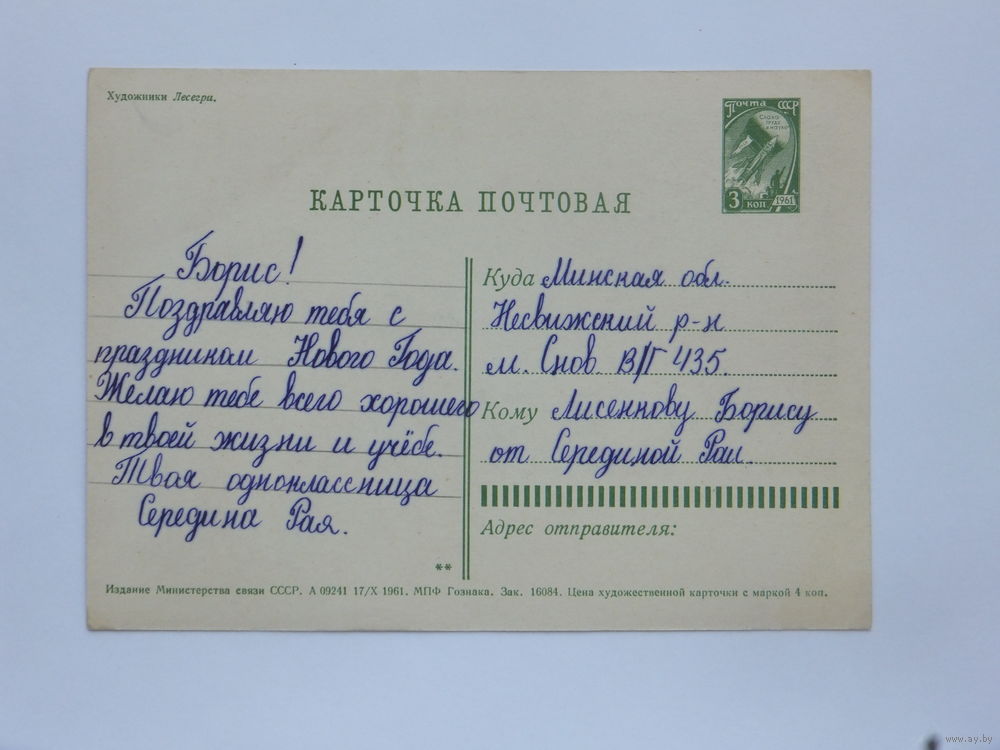 Художники Лесегри.
Почта СССР
Слава
труду
и науке
3 коп 1961
КАРТОЧКА ПОЧТОВАЯ
Борис!
Поздравляю тебя с
праздником Нового Года.
Желаю тебе всего хорошего
в твоей жизни и учёбе.
Твоя одноклассница
Середина Рая.
**
Куда Минская обл.
Несвижский р-н
м. Снов В/Г 435.
Кому Лисенкову Борису
от Серединой Раи.
Адрес отправителя:
Издание Министерства связи СССР. А 09241 17/X 1961. МПФ Гознака. Зак. 16084. Цена художественной карточки с маркой 4 коп.
www.ay.by